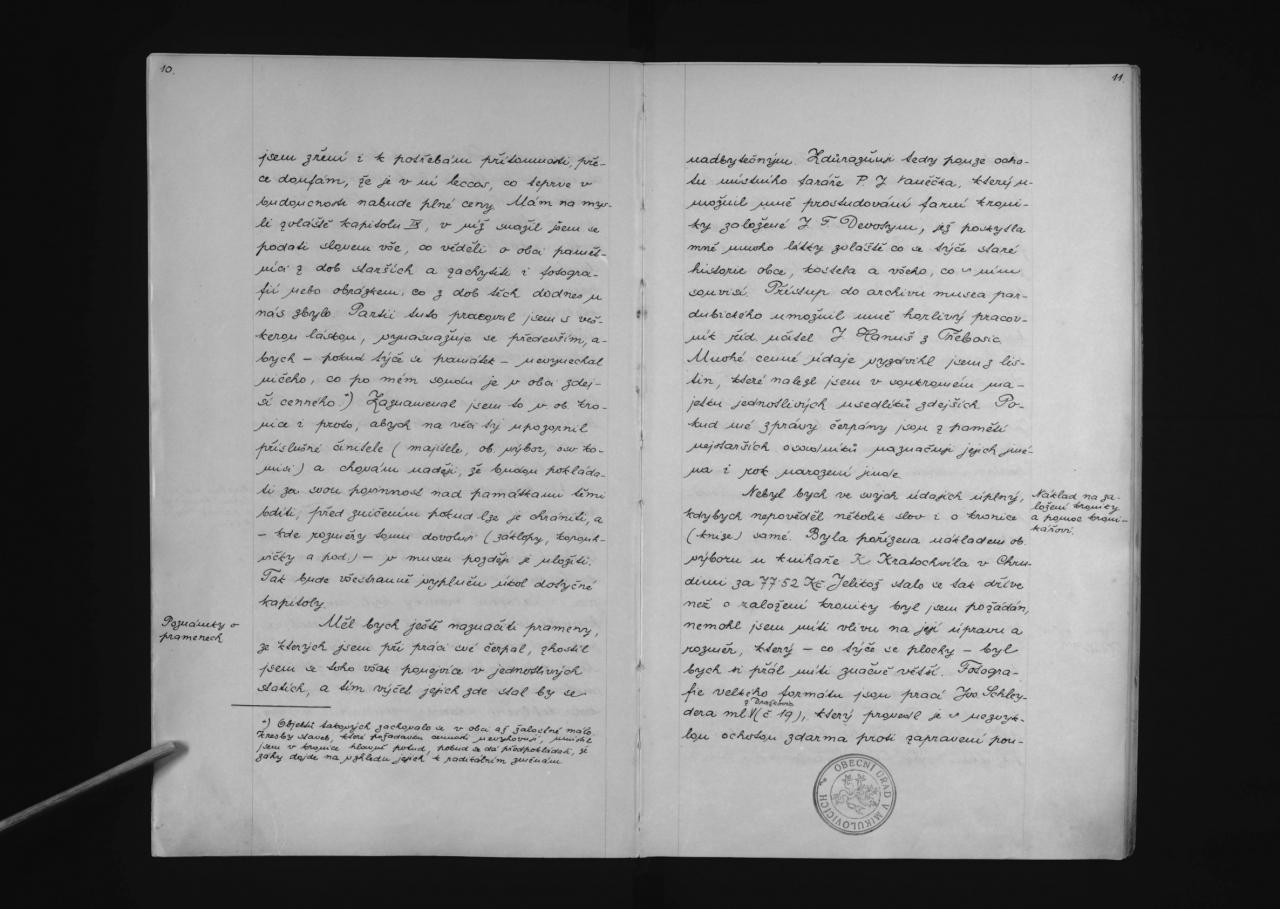 10.
jsem zření i k potřebám přítomnosti, pře-
ce doufám, že je v ní leccos, co teprve v
budoucnosti nabude plné ceny. Mám na mys-
li zvláště kapitolu IX, v níž snažil jsem se
podati slovem vše, co věděli o obci pamět-
níci z dob starších a zachytiti i fotogra-
fií nebo obrázkem, co z dob těch dodnes u
nás zbylo. Partii tuto pracoval jsem s veš-
kerou láskou, vynasnažuje se především, a-
bych – pokud týče se památek – nevynechal
ničeho, co po mém soudu je v obci zdej-
ší cenného.*) Zaznamenal jsem to v ob. kro-
nice i proto, abych na věci ty upozornil
příslušné činitele (majitele, ob. výbor, osv. ko-
misi) a chovám naději, že budou pokláda-
ti za svou povinnost nad památkami těmi
bdíti, před zničením pokud lze je chrániti, a
– kde rozměry tomu dovolují (záklopy, korouh-
vičky a pod.) – v museu později je uložiti.
Tak bude všestranně vyplněn úkol dotyčné
kapitoly.
Poznámky o
pramenech
Měl bych ještě naznačiti prameny,
ze kterých jsem při práci své čerpal, zhostil
jsem se toho však ponejvíce v jednotlivých
statích, a tím výčet jejich zde stal by se
*) Objektů takových zachovalo se v obci až žalostně málo.
Kresby staveb, které požadavku cennosti nevyhovují, umístil
jsem v kronice hlavně potud, pokud se dá předpokládati, že
záhy dojde na vzhledu jejich k radikálním změnám
11.
nadbytečným. Zdůrazňuji tedy pouze ocho-
tu místního faráře P. J. Vaněčka, který u-
možnil mně prostudování farní kroni-
ky založené J. F. Devotym, jež poskytla
mně mnoho látky zvláště co se týče staré
historie obce, kostela a všeho, co s ním
souvisí. Přístup do archivu musea par-
dubického umožnil mně horlivý pracov-
ník říd. učitel J. Hanuš z Třebosic.
Mnohé cenné údaje vyzdvihl jsem z lis-
tin, které nalezl jsem v soukromém ma-
jetku jednotlivých usedlíků zdejších. Po-
kud mé zprávy čerpány jsou z paměti
nejstarších osadníků naznačuji jejich jmé-
na i rok narození jinde.
Nebyl bych ve svých údajích úplný,
kdybych nepověděl několik slov i o kronice
(knize) samé. Byla pořízena nákladem ob.
výboru u knihaře K. Kratochvíla v Chru-
dimi za 77·52 Kč. Jelikož stalo se tak dříve
než o založení kroniky byl jsem požádán,
nemohl jsem míti vlivu na její úpravu a
rozměr, který – co týče se plochy – byl
bych si přál míti značně větší. Fotogra-
fie velkého formátu jsou prací Jos. Schley-
z Dražkovic
dera ml. V (č 19), který provedl je s nezvyk-
lou ochotou zdarma proti zapravení pou-
Náklad na za-
ložení kroniky
a pomoc kroni-
kářovi.
OBECNÍ ÚŘAD V MIKULOVICÍCH